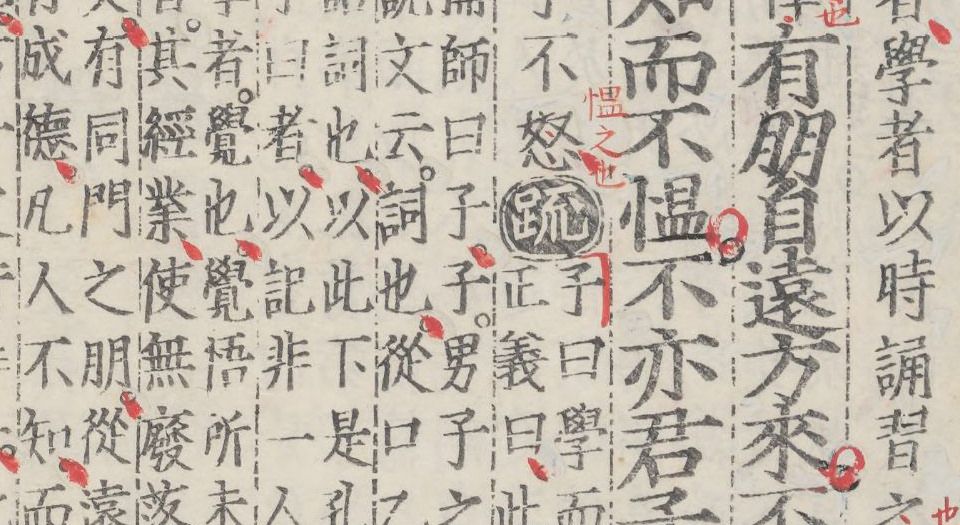 學者以時誦習
也
有朋自遠方來不
而不慍不亦君子
慍之也
不怒
疏
子曰學而
正義曰此
師曰子子男子之
文云詞也從口乙
詞也以此下是孔
曰者以記非一人
者覺也覺悟所未
其經業使無廢落
有同門之朋從遠
成德凡人不知而
也